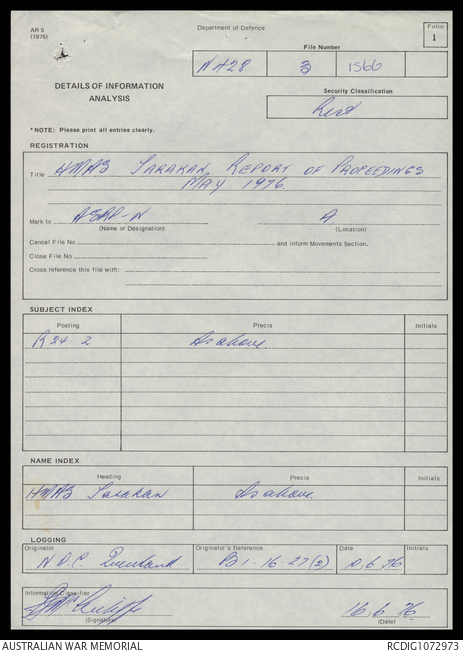 AR 5
(1975)
Department of Defence
Folio
1
File Number
N A28 3 1566
DETAILS OF INFORMATION
ANALYSIS
Security Classification
Rest
*NOTE: Please print all entries clearly.
REGISTRATION
Title HMAS TARAKAN REPORT OF PROCEEDINGS
MAY 1976.
Mark to ASRP-N A
(Name or Designation) (Location)
Cancel File No and inform Movements Section.
Close File No
Cross reference this file with:
SUBJECT INDEX
Posting Precis Initials
R24-2 As above.
NAME INDEX
Heading Precis Initials
HMAS Tarakan As above.
LOGGING
Originator Originator's Reference Date Initials
N.O.C. Queensland B1-16-27(2) 10.6.76
Information Classifier
(Signature)
16.6.76
(Date)
AUSTRALIAN WAR MEMORIAL RCDIG1072973